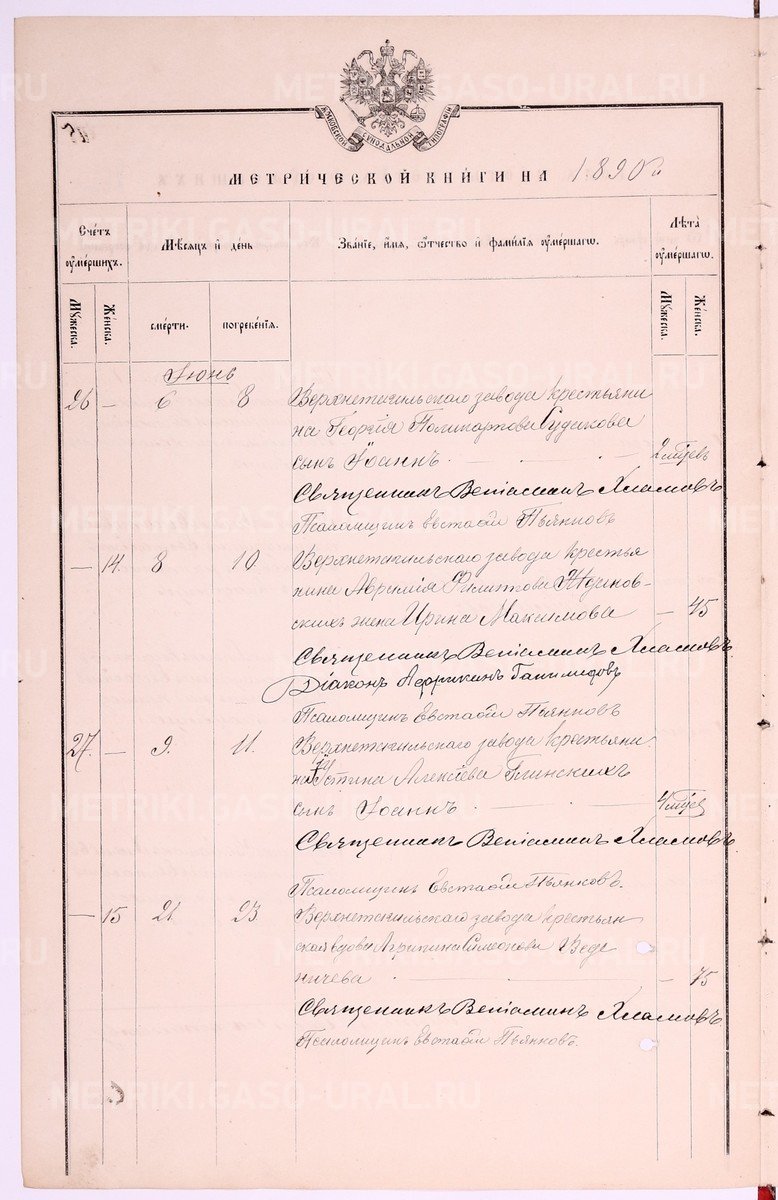 МОСКОВСКОЙ СѴНОДАЛЬНОЙ ТИПОГРАФІИ
МЕТРИЧЕСКОЙ КНИГИ НА 1890 г.
Счетъ умершихъ.
Мѣсяцъ и день
Званіе, имя, отчество и фамилія умершаго.
Лѣта умершаго.
Мужеска. Женска. смерти. погребенія. Мужеска. Женска.
Іюнь
26 — 6 8 Верхнетагильскаго завода крестьяни
на Георгія Поликарпова Судакова
сынъ Іоаннъ. 2 мѣсяц
Священникъ Веніаминъ Хламовъ
Псаломщикъ Евстафій Пьянковъ
— 14. 8 10 Верхнетагильскаго завода крестья
нина Авремія Филиппова
скихъ жена Ирина Максимова — 45
Священникъ Веніаминъ Хламовъ
Діаконъ Африканъ Ганимедовъ
Псаломщикъ Евстафій Пьянковъ
27. — 9. 11. Верхнетагильскаго завода крестьяни
на Іустина Алексѣева Глинскихъ
сынъ Іоаннъ
Священникъ Веніаминъ Хламовъ
Псаломщикъ Евстафій Пьянковъ.
— 15 21 23 Верхнетагильскаго завода крестьян
ская вдова Агрипина Симеонова Веде
ничева — 75
Священникъ Веніаминъ Хламовъ
Псаломщикъ Евстафій Пьянковъ.
METRIKI.GASO-URAL.RU